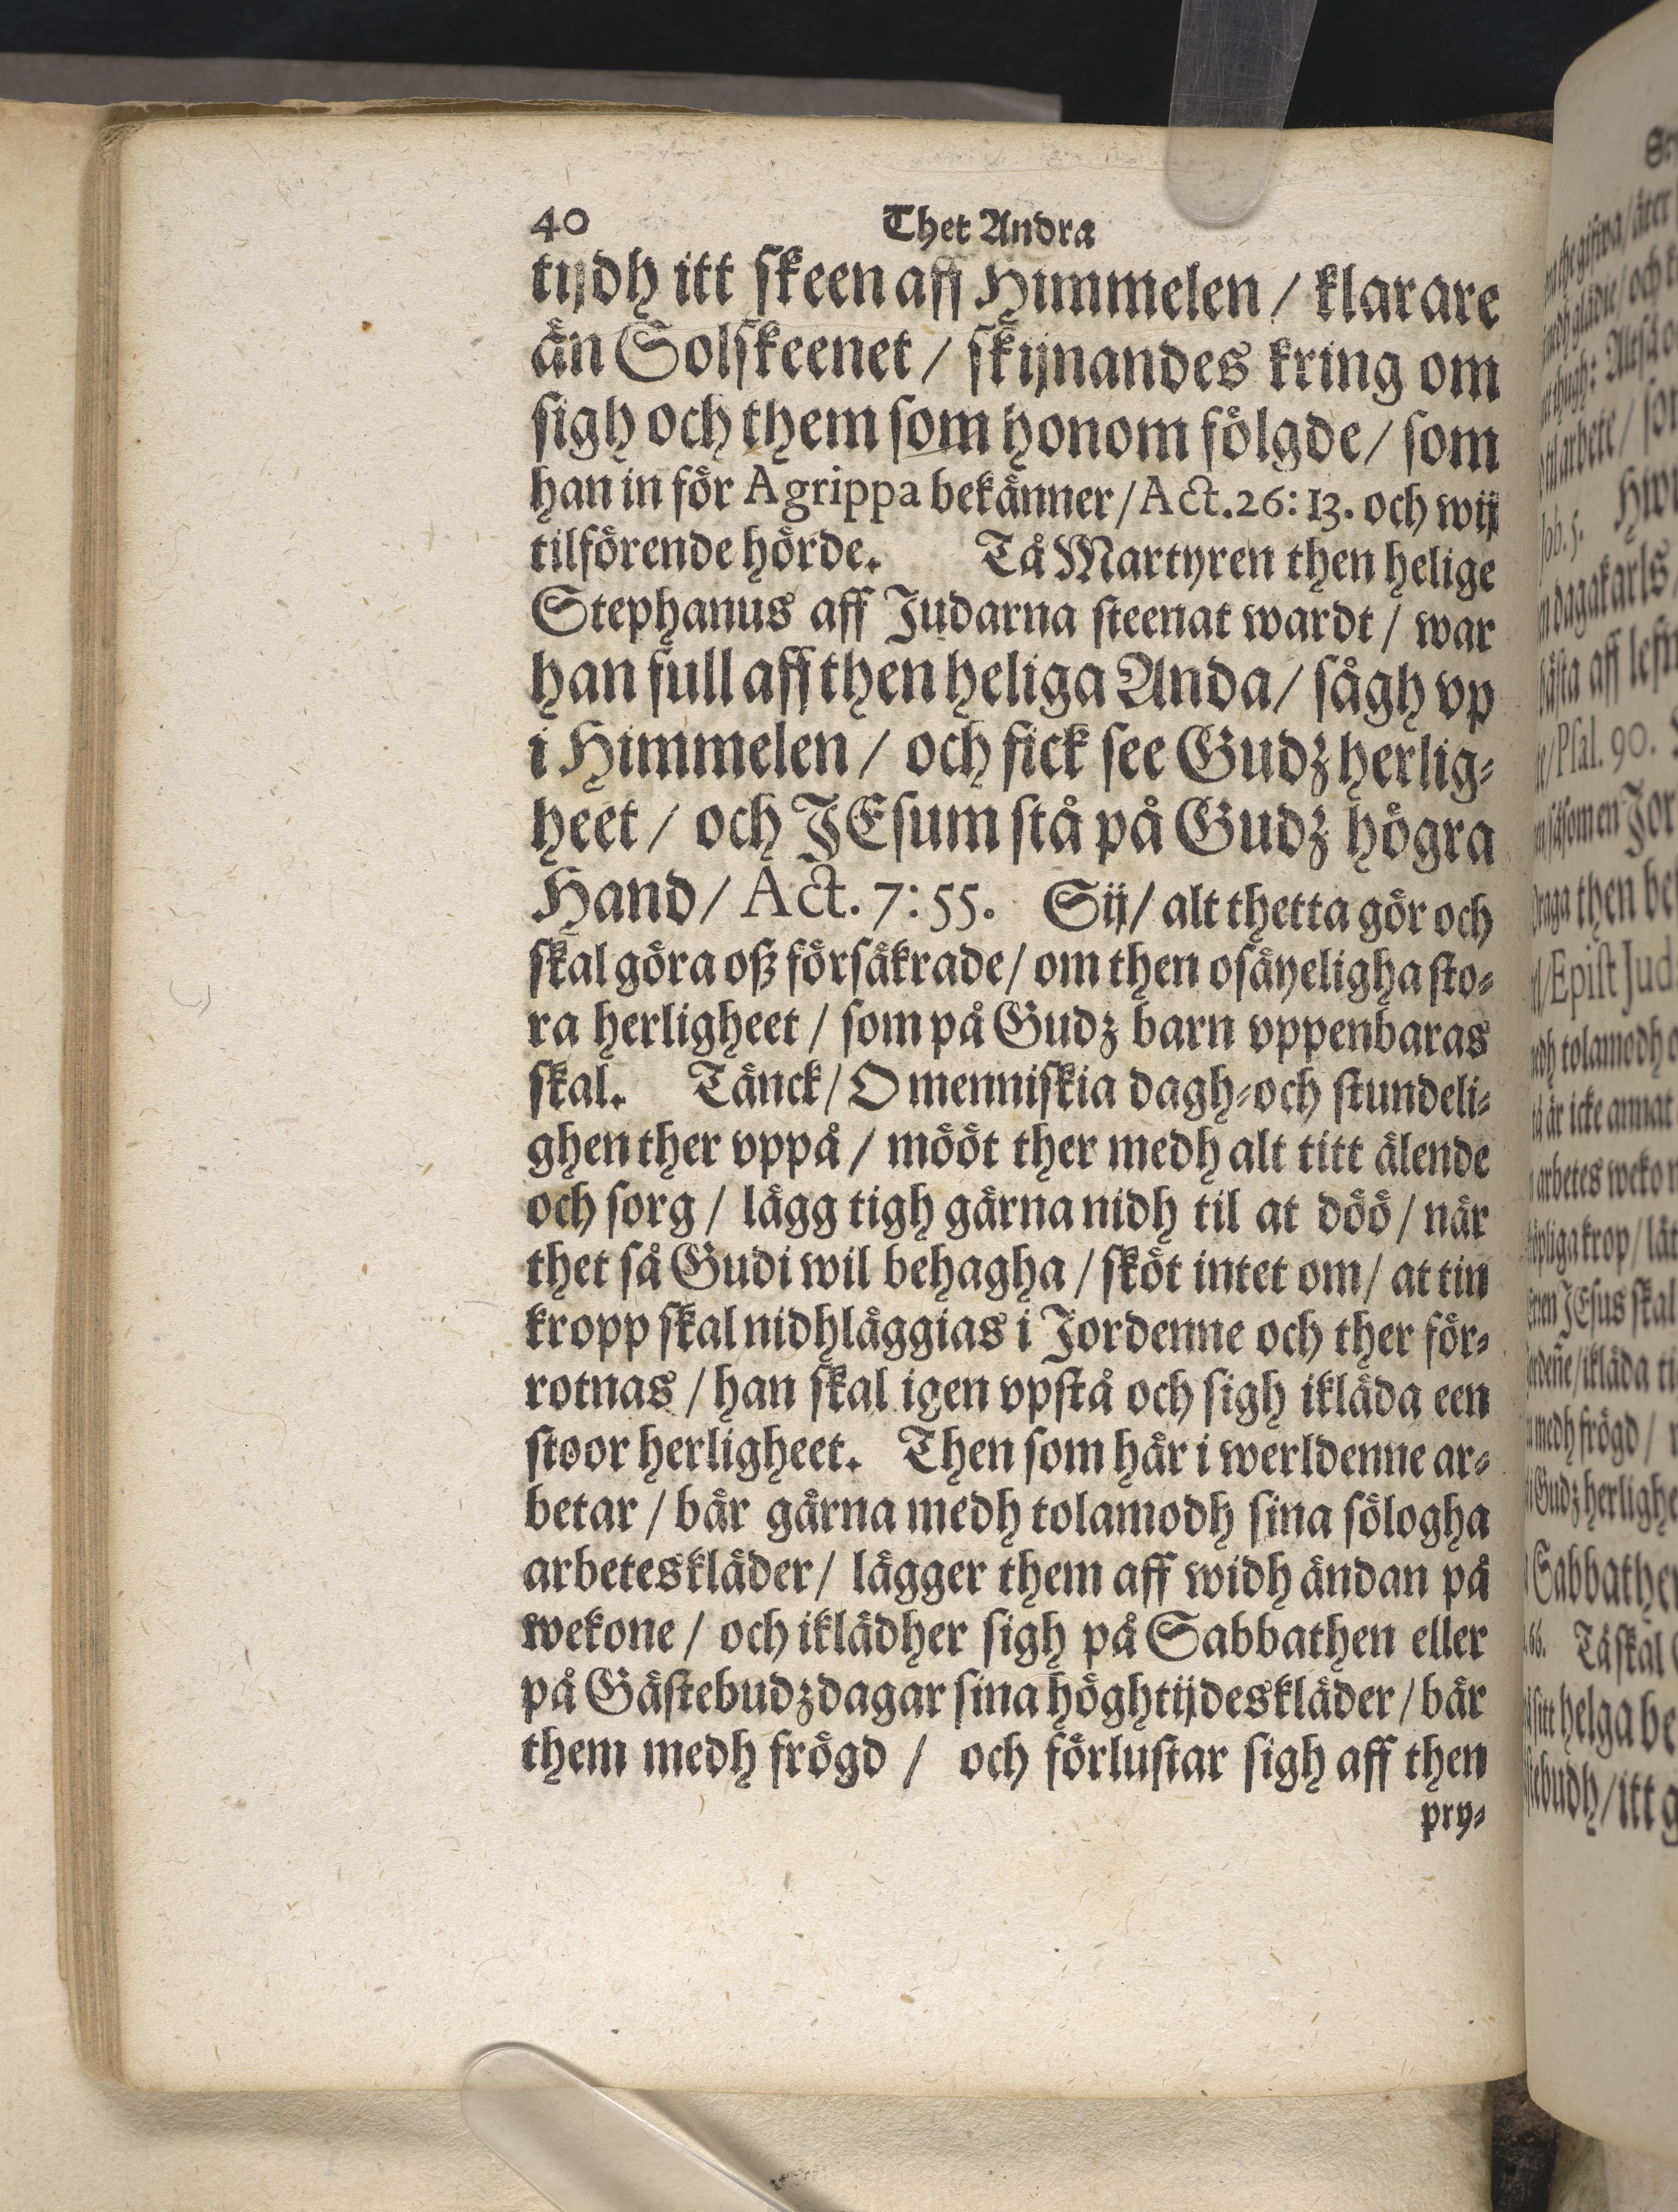 40 Thet Andra
tijdh itt skeen aff Himmelen / klarare
än Solskeenet / skijnandes kring om
sigh och them som honom fölgde / som
han in för Agrippa bekänner / Act. 26: 13. och wij
tilförende hörde. Tå Martyren then helige
Stephanus aff Judarna steenat wardt / war
han full aff then heliga Anda / sågh vp
i Himmelen / och fick see Gudz herlig-
heet / och JEsum stå på Gudz högra
Hand / Act. 7: 55. Sij / alt thetta gör och
skal göra oß försäkrade / om then osäyeligha sto-
ra herligheet / som på Gudz barn vppenbaras
skal. Tänck / O menniskia dagh- och stundeli-
ghen ther vppå / mööt ther medh alt titt älende
och sorg / lägg tigh gärna nidh til at döö / när
thet så Gudi wil behagha / sköt intet om / at tin
kropp skal nidhläggias i Jordenne och ther för-
rotnas / han skal igen vpstå och sigh ikläda een
stoor herligheet. Then som här i werldenne ar-
betar / bär gärna medh tolamodh sina sölogha
arbeteskläder / lägger them aff widh ändan på
wekone / och iklädher sigh på Sabbathen eller
på Gästebudzdagar sina höghtijdeskläder / bär
them medh frögd / och förlustar sigh aff then
pry-
åter
Hwi
dagakarls
Psal. 90.
som en Jor
draga then
Epist Jud
tolamodh
är icke annat
arbetes weko
krop / låt
JEsus skal
ikläda ti
medh frögd /
Gudz herlighe
Sabbathen
66. Tå skal
sitt helga be
itt g